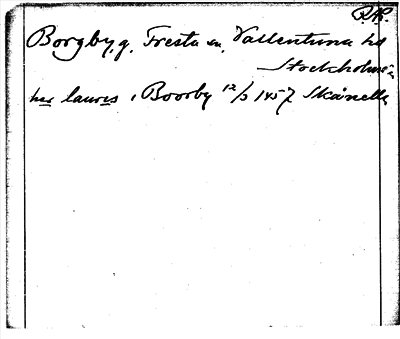 R.A.P.
Borgby, g. Fresta sn. Vallentuna hd
Stockholms l.
her laurəs i Boorby 12/3 1457 Skånella